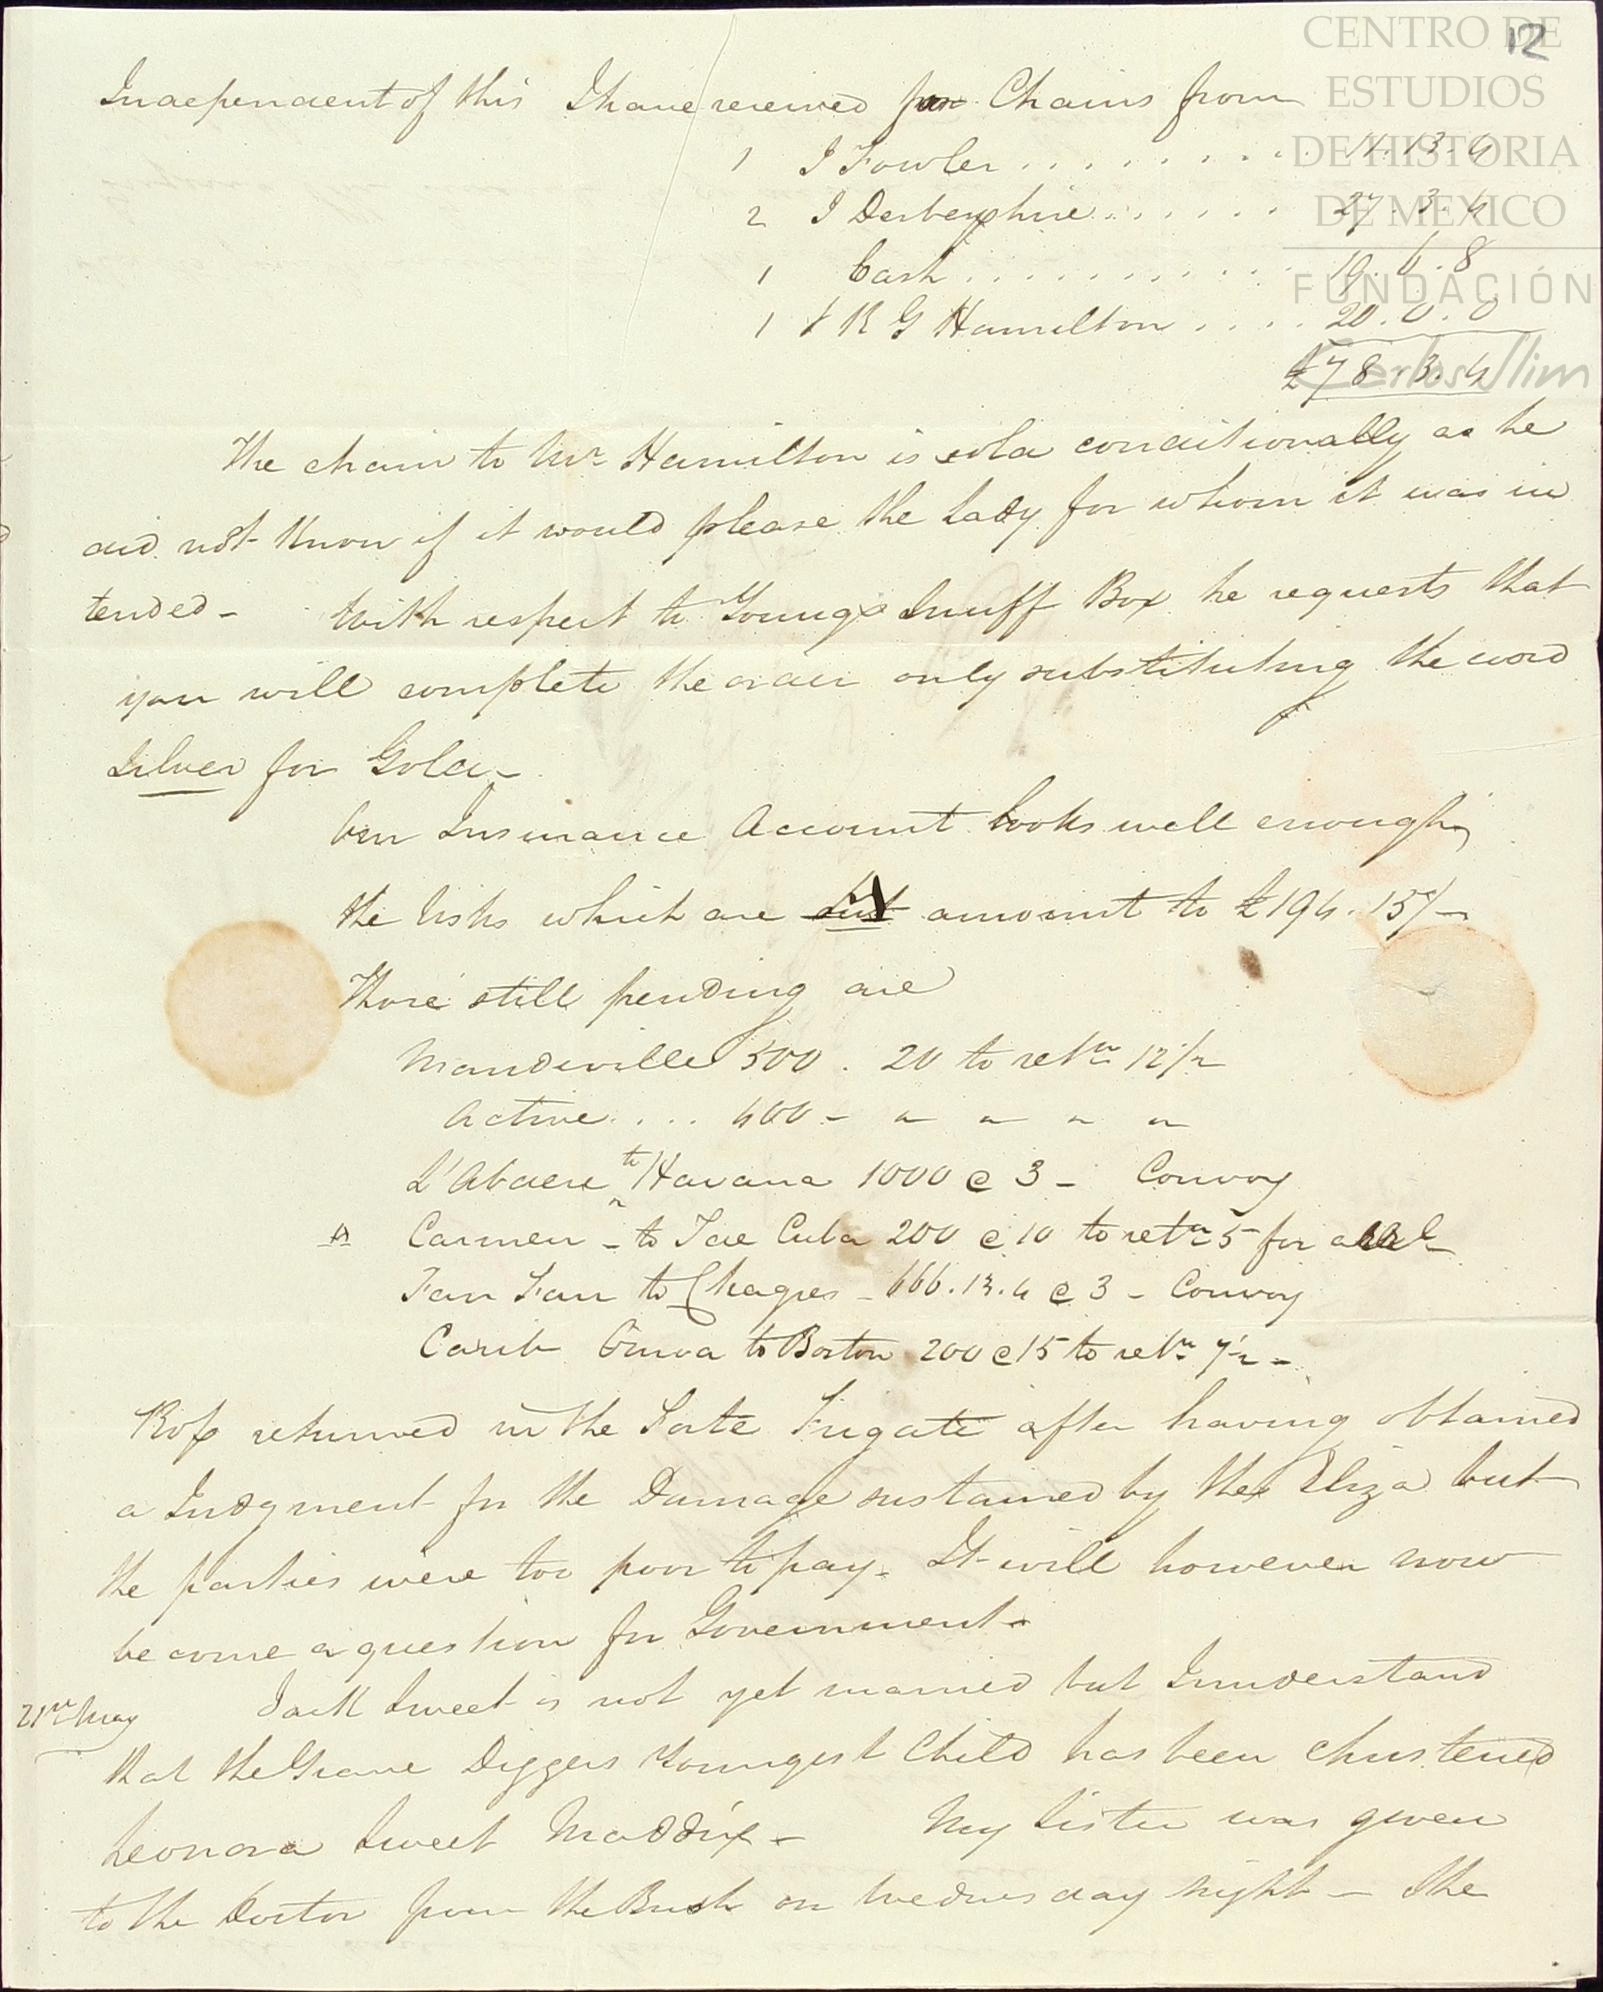 12
CENTRO DE
ESTUDIOS
DE HISTORIA
DE MEXICO
FUNDACIÓN
Carlos Slim
Independent of this I have received for Chains from
1 I Fowler . . . . . . . . 11.13.4
2 I Derbyshire . . . . . . 27.3.4
1 Cash . . . . . . . . . . . 19.6.8
1 R G Hamilton . . . . 20.0.0
£78.3.4
The chain to Mr Hamilton is sold conditionally as he
did not know if it would please the Lady for whom it was in
tended - With respect to Youngs Snuff Box he requests that
you will complete the order only substituting the word
Silver for Gold -
Our Insurance Account looks well enough,
the risks which are amount to £194.15/-
Those still pending are
Mandeville 500 . 20 to retn 12/2
Active . . . 400 - " " " "
L'Abaere to Havana 1000 @ 3 - Convoy
Carmen - to Tde Cuba 200 @ 10 to retn 5 for
Fan Fan to Chagres - 666.13.4 @ 3 - Convoy
Carib to Boston 200 @ 15 to retn 7½ -
Ross returned in the Forte Frigate after having obtained
a Judgment for the Damage sustained by the Eliza but
the parties were too poor to pay. It will however now
become a question for Government -
21st May Jack Sweet is not yet married but I understand
that the Grave Diggers Youngest Child has been christened
Leonora Sweet Maddix - My Sister was given
to the Doctor from the Bush on Wednesday night - The